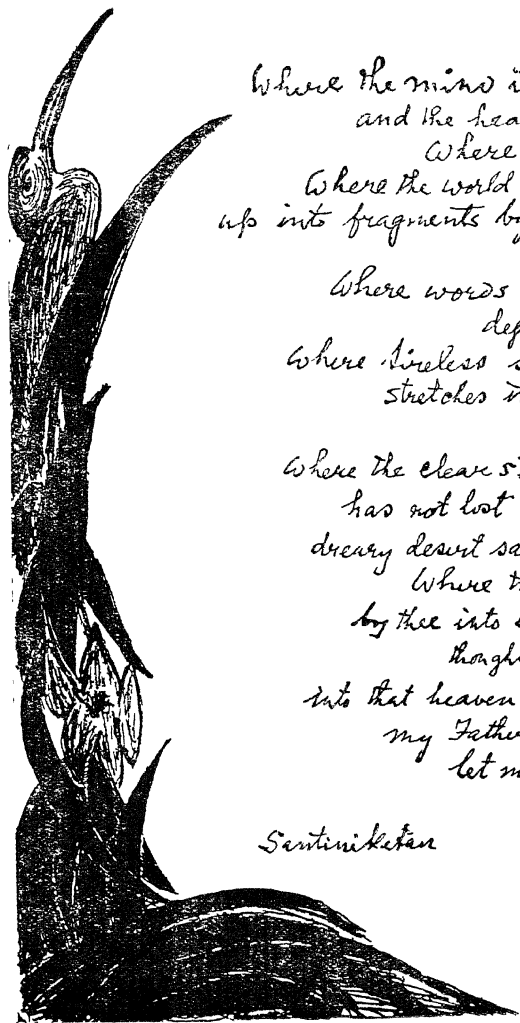 Where the mind i
and the hea
Where
Where the world
up into fragments by
Where words
dep
Where tireless s
stretches i
Where the clear st
has not lost
dreary desert sa
Where t
by thee into e
thought
into that heaven
my Father
let m
Santiniketan